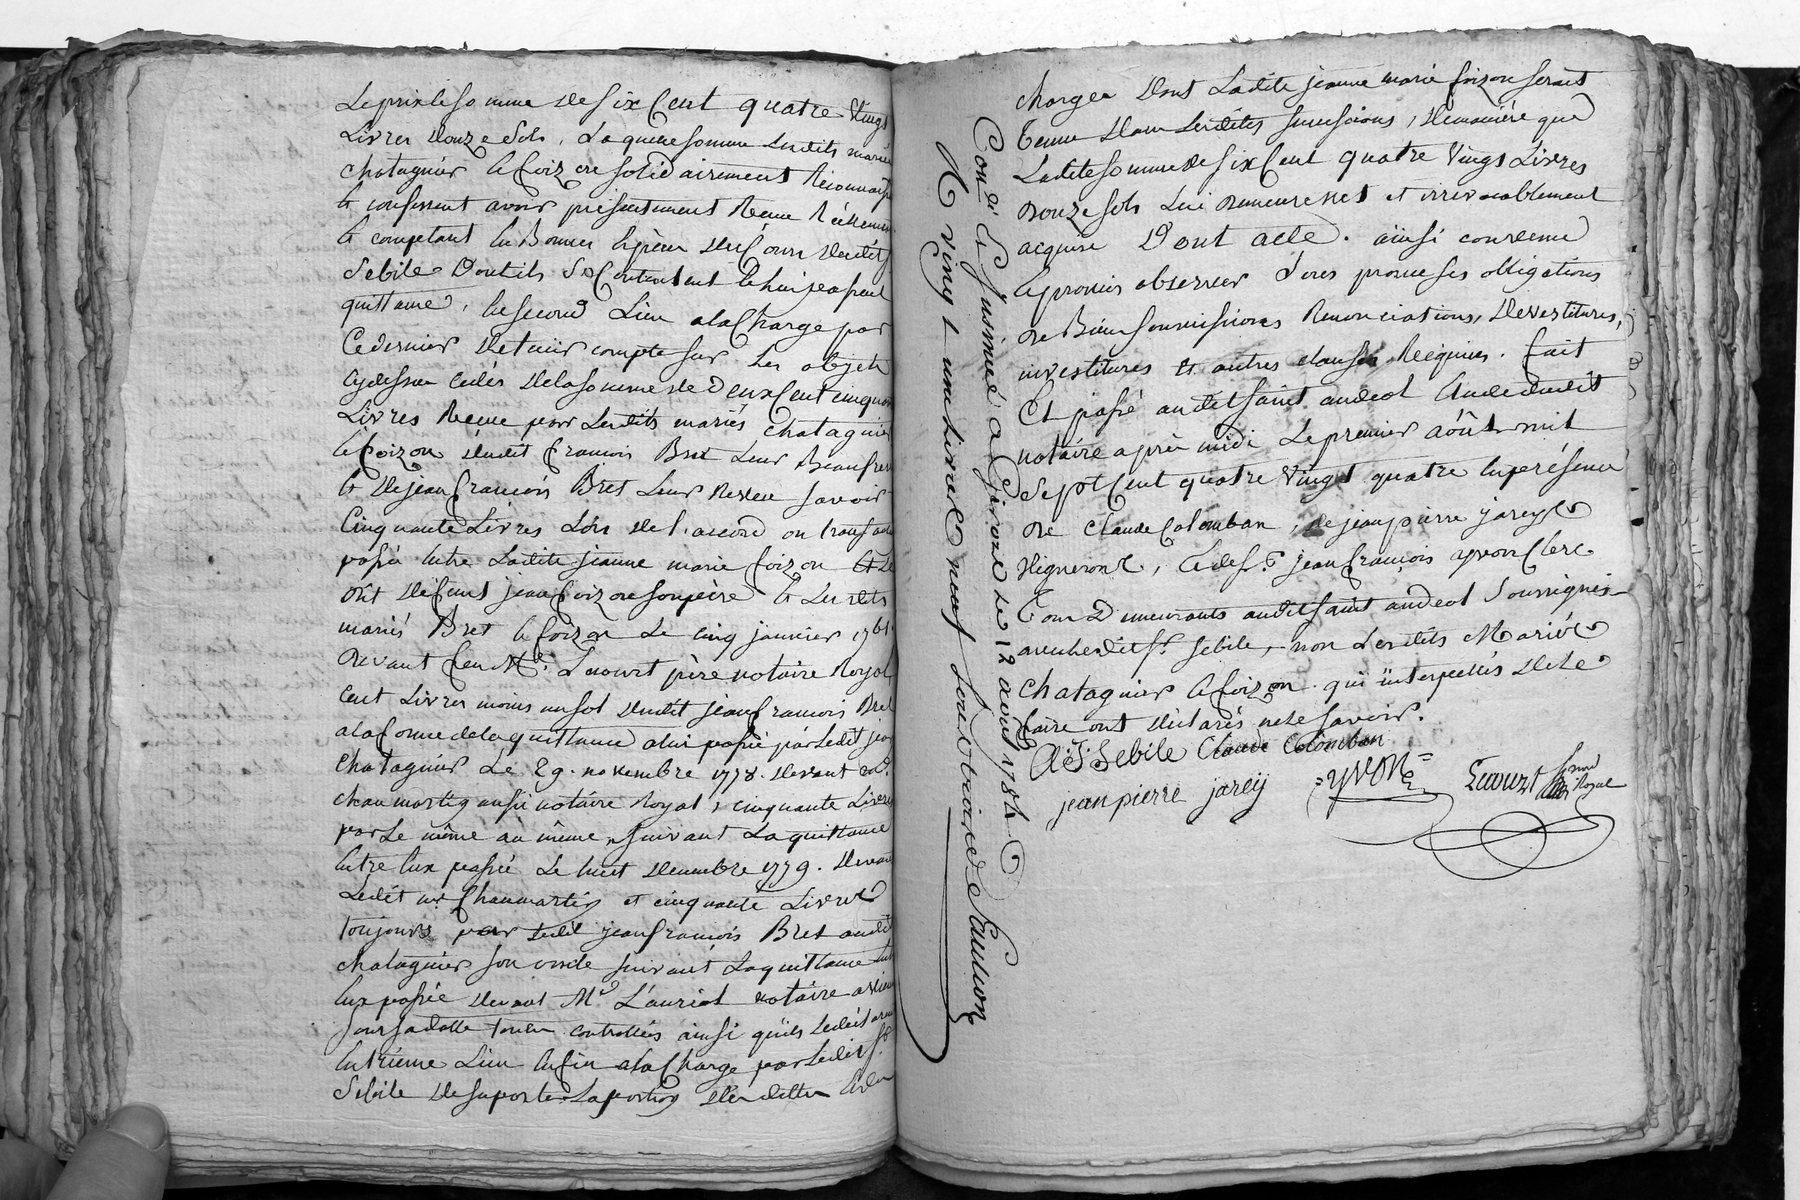 Le prix le somme de six Cent quatre Vingt
Livres douze Sols, Laquelle somme Lesdits mariés
chatagnier & foizon solidairement Reconnaissent
& confessent avoir présentement Reçue Réellement
& comptant en Bonnes Espèces du Cours dudit
Sebile Dont ils se contentent
quittance, en second Lieu a la Charge par
Ce dernier de tenir compte sur les objets
cydessus cedés de la somme de Deux Cent cinquante
Livres Reçue par Lesdits mariés chatagnier
& foizon dudit francois Bret Leur Beaufrere
& de jean francois Bret Leur Neveu savoir
Cinquante Livres Lors de l'accord ou transaction
passé Entre Ladite jeanne marie foizon
dit defunt jean foizon son père & Lesdits
mariés Bret & foizon Le cinq janvier 1761
devant feu Me Lacourt père notaire Royal
Cent Livres moins un sol dudit jean francois Bret
a la forme de la quittance a lui passé par Ledit jean
Chatagnier Le 29. novembre 1778. devant me
chaumartin aussi notaire Royal, cinquante Livres
par Le même au même suivant La quittance
Entre Eux passée Le huit decembre 1779. devant
Ledit me Chaumartin et cinquante Livres
toujours par Ledit jean francois Bret audit
chatagnier son oncle suivant La quittance
Eux passée devant Me L'auriol notaire
toutes controllées ainsi qu'ils Le déclarent
En troisième Lieu Enfin a la Charge par Ledit Sr
Sebile de suporter La portion des dettes &
charges dont Ladite jeanne marie foizon serait
tenue dans Lesdites successions, de manière que
Ladite somme de six Cent quatre Vingt Livres
douze sols Lui demeure net et irrevocablement
acquise Dont acte. ainsi convenu
& promis observer sous promesses obligations
de Biens soumissions Renonciations, devestitures,
investitures & autres clauses Requises. fait
Et passé audit saint andeol Etude dudit
notaire après midi Le premier août mil
sept Cent quatre Vingt quatre En présence
de Claude Colomban, de jean pierre jarey
Vignerons, & de Sr jean francois yvon Clerc
tous Demeurants audit saint andeol soussignés
avec Ledit Sr sebile, non Lesdits Mariés
Chatagnier & foizon qui interpellés de Le
faire ont déclarés ne Le savoir.
A.J. Sebile Claude Colomban
jean pierre jarey yvon Lacourt nre Royal
Con. & Insinué a Givors Le 12 août 1784
R vingt une Livres neuf sous